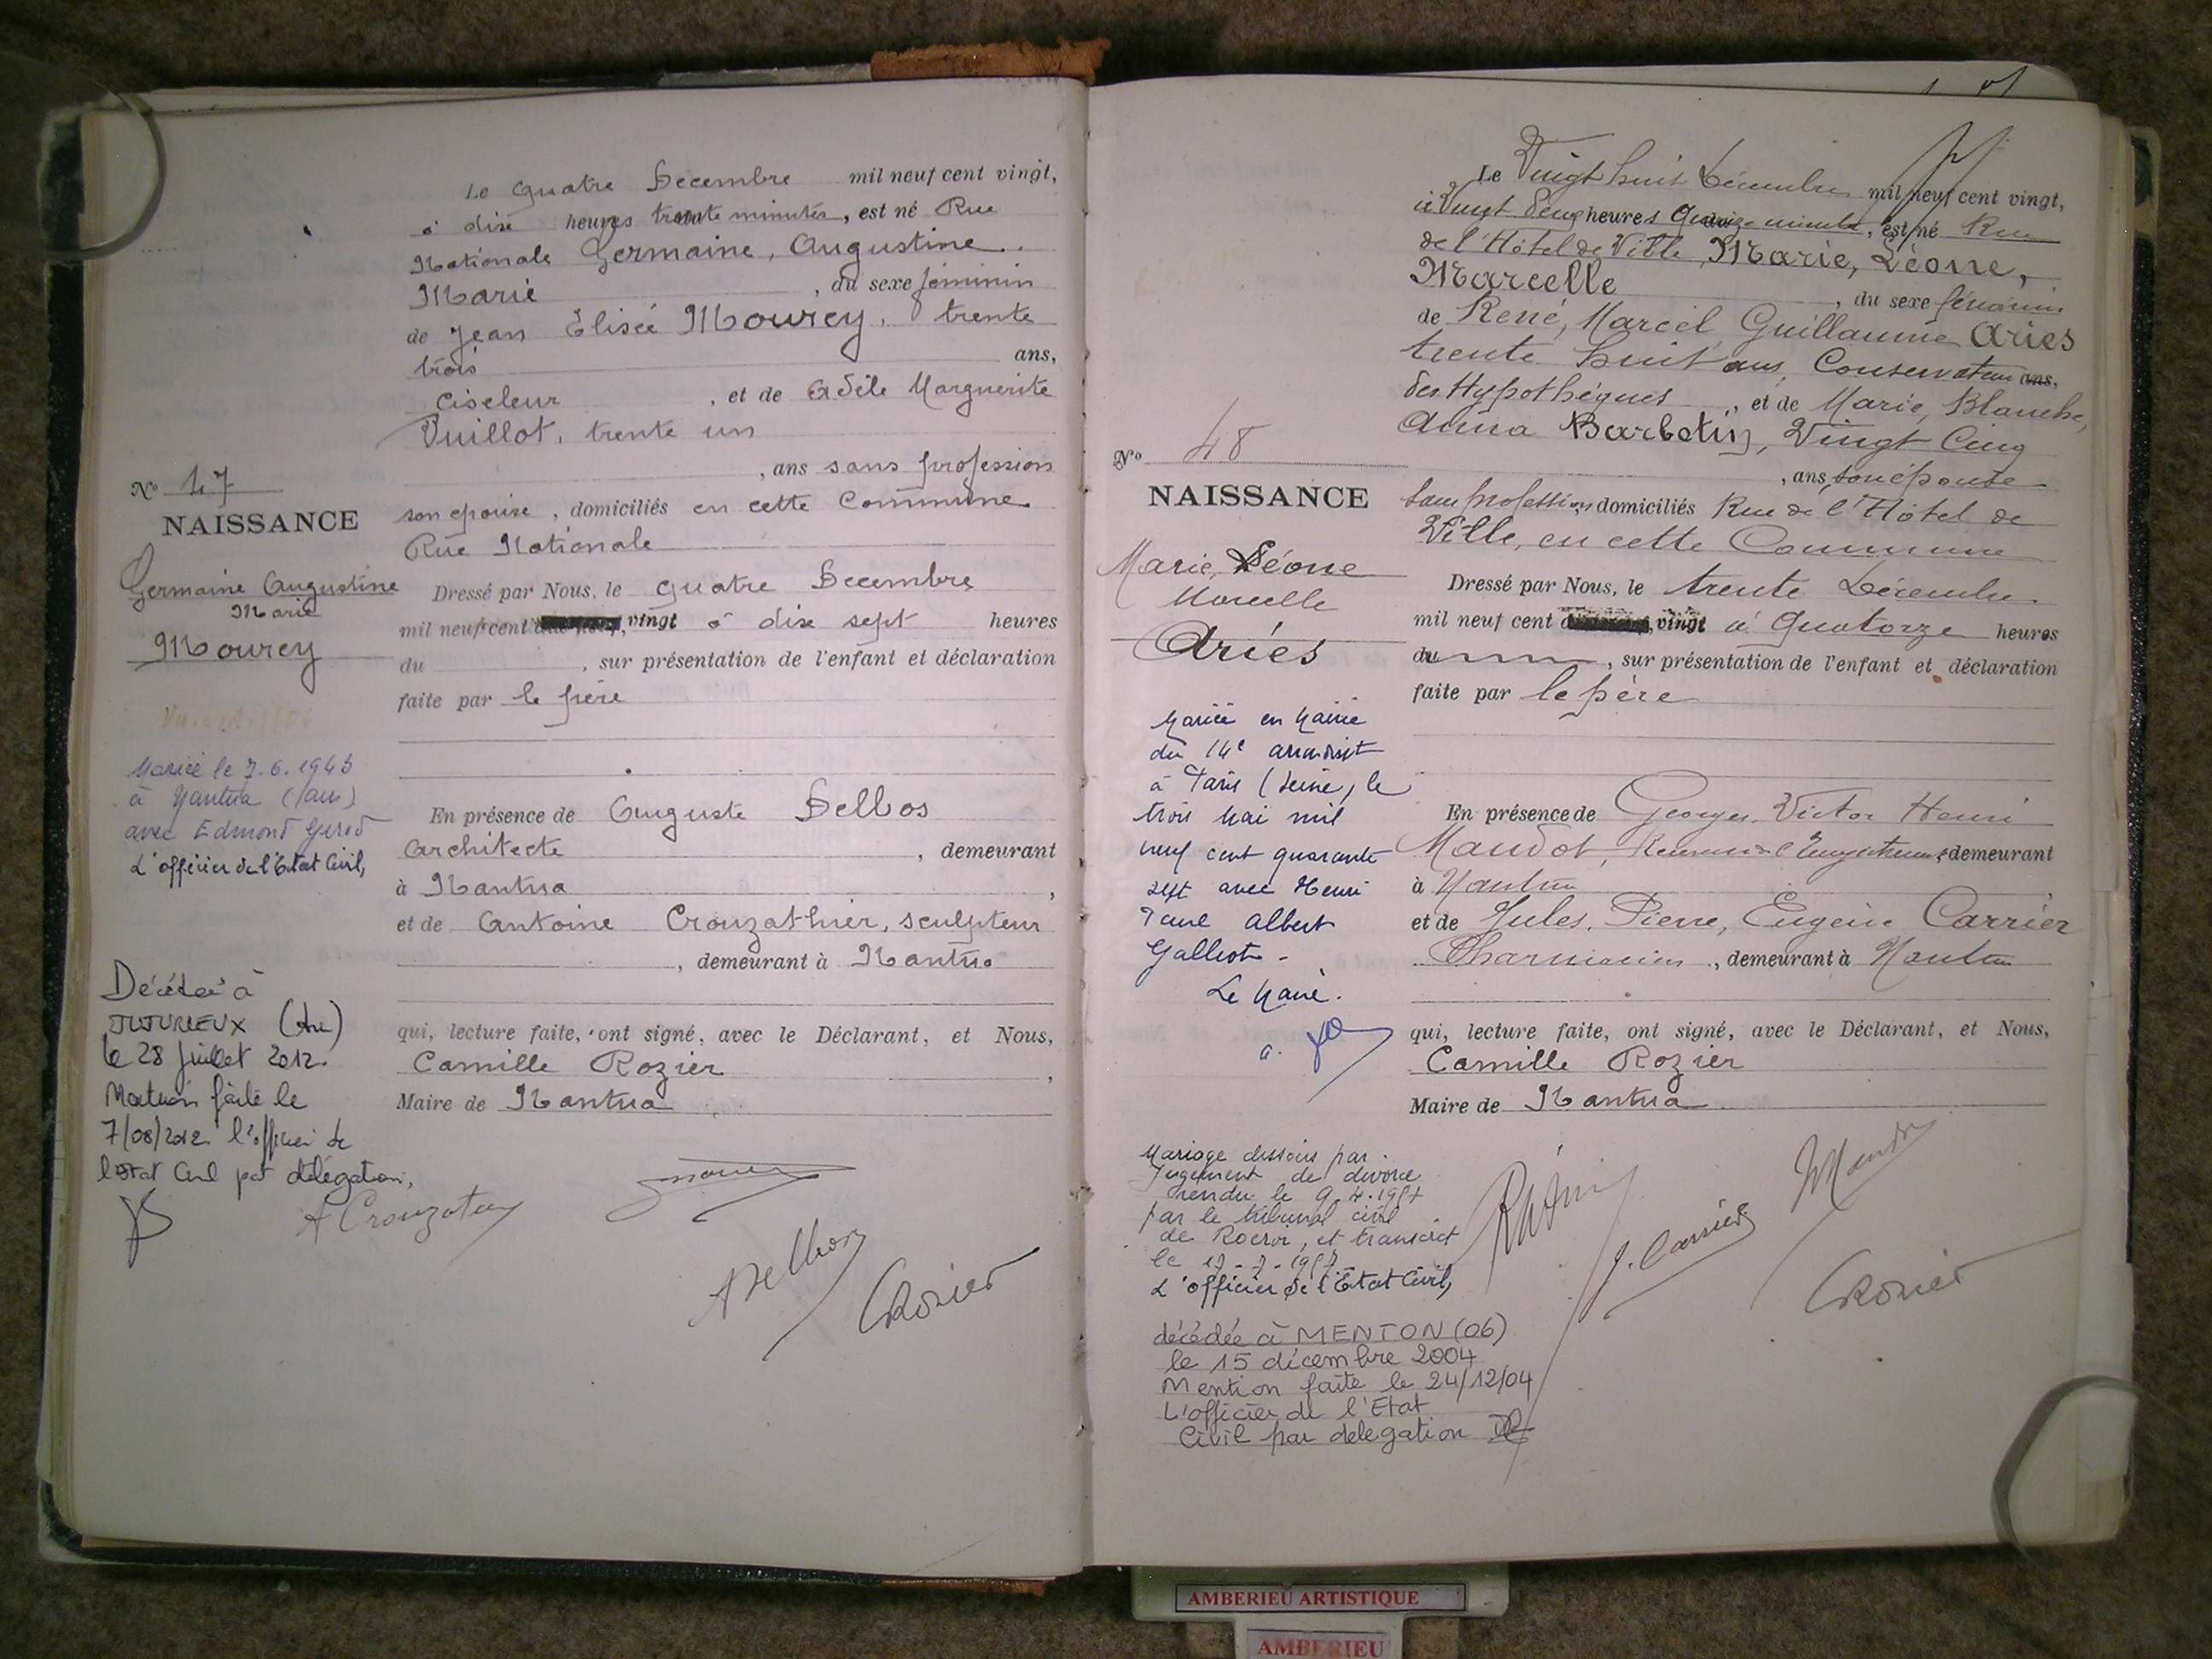 Le Quatre Decembre mil neuf cent vingt,
à dixe heures trente minutes, est né Rue
Nationale Germaine, Augustine
Marie, du sexe féminin
de Jean Elisée Mourey, trente
trois ans,
ciseleur, et de Adèle Marguerite
Vuillot, trente un
, ans sans profession
son epouse, domiciliés en cette Commune
Rue Nationale
Dressé par Nous, le quatre Decembre
mil neuf cent vingt à dix sept heures
du , sur présentation de l'enfant et déclaration
faite par le père
En présence de Auguste Delbos
Architecte, demeurant
à Nantua,
et de Antoine Crouzathier, sculpteur
, demeurant à Nantua
qui, lecture faite, ont signé, avec le Déclarant, et Nous,
Camille Rozier,
Maire de Nantua
A Crouzat
A Delbos
CRozier
No 47
NAISSANCE
Germaine Augustine
Marie
Mourey
Mariée le 7.6.1943
à Nantua (Ain)
avec Edmond Girod
L'officier de l'Etat Civil,
Décédée à
JUJURIEUX (Ain)
le 28 Juillet 2012.
Mention faite le
7/08/2012 l'officier de
l'Etat Civil par délégation,
Le Vingt huit Décembre mil neuf cent vingt,
à Vingt deux heures Quinze minutes, est né Rue
de l'Hôtel de Ville, Marie, Léone,
Marcelle, du sexe féminin
de René, Marcel, Guillaume Ariès
trente huit ans, Conservateur ans,
des Hypothèques, et de Marie, Blanche,
Anna Barbotin, Vingt Cinq
, ans son épouse
sans profession, domiciliés Rue de l'Hôtel de
Ville, en cette Commune
Dressé par Nous, le trente Décembre
mil neuf cent vingt à Quatorze heures
du , sur présentation de l'enfant et déclaration
faite par le père
En présence de Georges, Victor Henri
Maudot, Receveur de l'Enregistrement, demeurant
à Nantua
et de Jules, Pierre, Eugène Carrier
Pharmacien, demeurant à Nantua
qui, lecture faite, ont signé, avec le Déclarant, et Nous,
Camille Rozier
Maire de Nantua
J. Carrier
CRozier
No 48
NAISSANCE
Marie, Léone
Marcelle
Ariès
Mariée en Mairie
du 14e arrondist
à Paris (Seine) le
trois Mai mil
neuf cent quarante
sept avec Henri
Paul Albert
Galliot -
Le Maire.
Mariage dissous par
Jugement de divorce
rendu le 9.4.1957
par le tribunal civil
de Rocroi, et transcrit
le 17-7-1957
L'officier de l'Etat Civil,
décédée à MENTON (06)
le 15 décembre 2004
Mention faite le 24/12/04
L'officier de l'Etat
Civil par délégation
AMBERIEU ARTISTIQUE
AMBERIEU